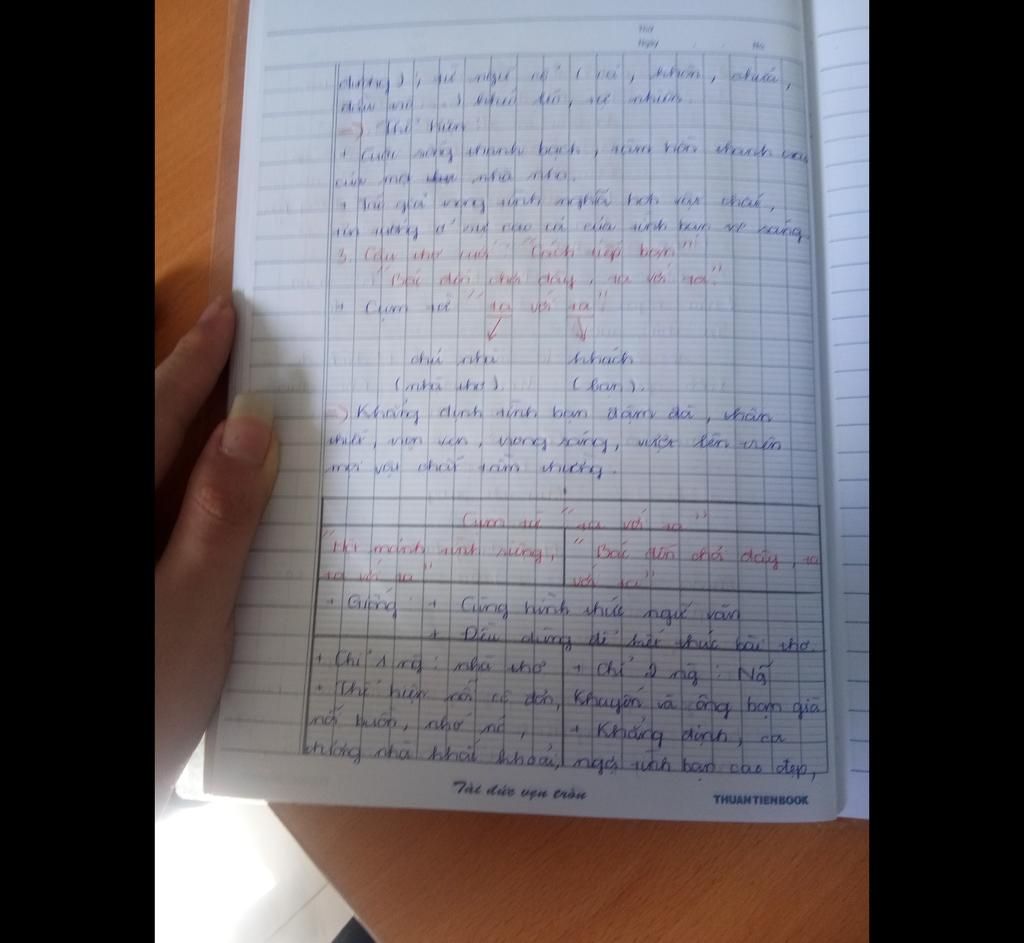 Thứ
Ngày No
dương), từ ngữ cổ (cá, khôn, chửa,
=> Thể hiện:
+ Cuộc sống thanh bạch, tâm hồn thanh cao
của một nhà nho.
+ Tác giả trọng tình nghĩa hơn vật chất,
tin tưởng ở sự cao cả của tình bạn
3. Câu thơ cuối: "Cách tiếp bạn"
"Bác đến chơi đây, ta với ta."
Cụm từ "ta với ta"
chủ nhà khách
(nhà thơ). (bạn).
=> Khẳng định tình bạn đậm đà, chân
thiết, trọn vẹn, trong sáng, vượt lên trên
mọi vật chất tầm thường.
Cụm từ "ta với ta"
"Một mảnh tình riêng, "Bác đến chơi đây, ta
ta với ta" với ta"
+ Giống: + Cùng hình thức ngữ văn
+ Đều dùng để kết thúc bài thơ.
+ Chỉ 1 ng: nhà thơ + Chỉ 2 ng: Ng̃
+ Thể hiện nỗi cô đơn, Khuyến và ông bạn già
nỗi buồn, nhớ nc, + Khẳng định, ca
thương nhà khắc khoải, ngợi tình bạn cao đẹp,
Tài đức vẹn toàn
THUANTIENBOOK